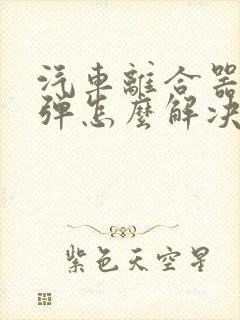 汽車離合器
彈怎麼解決
紫色天空星